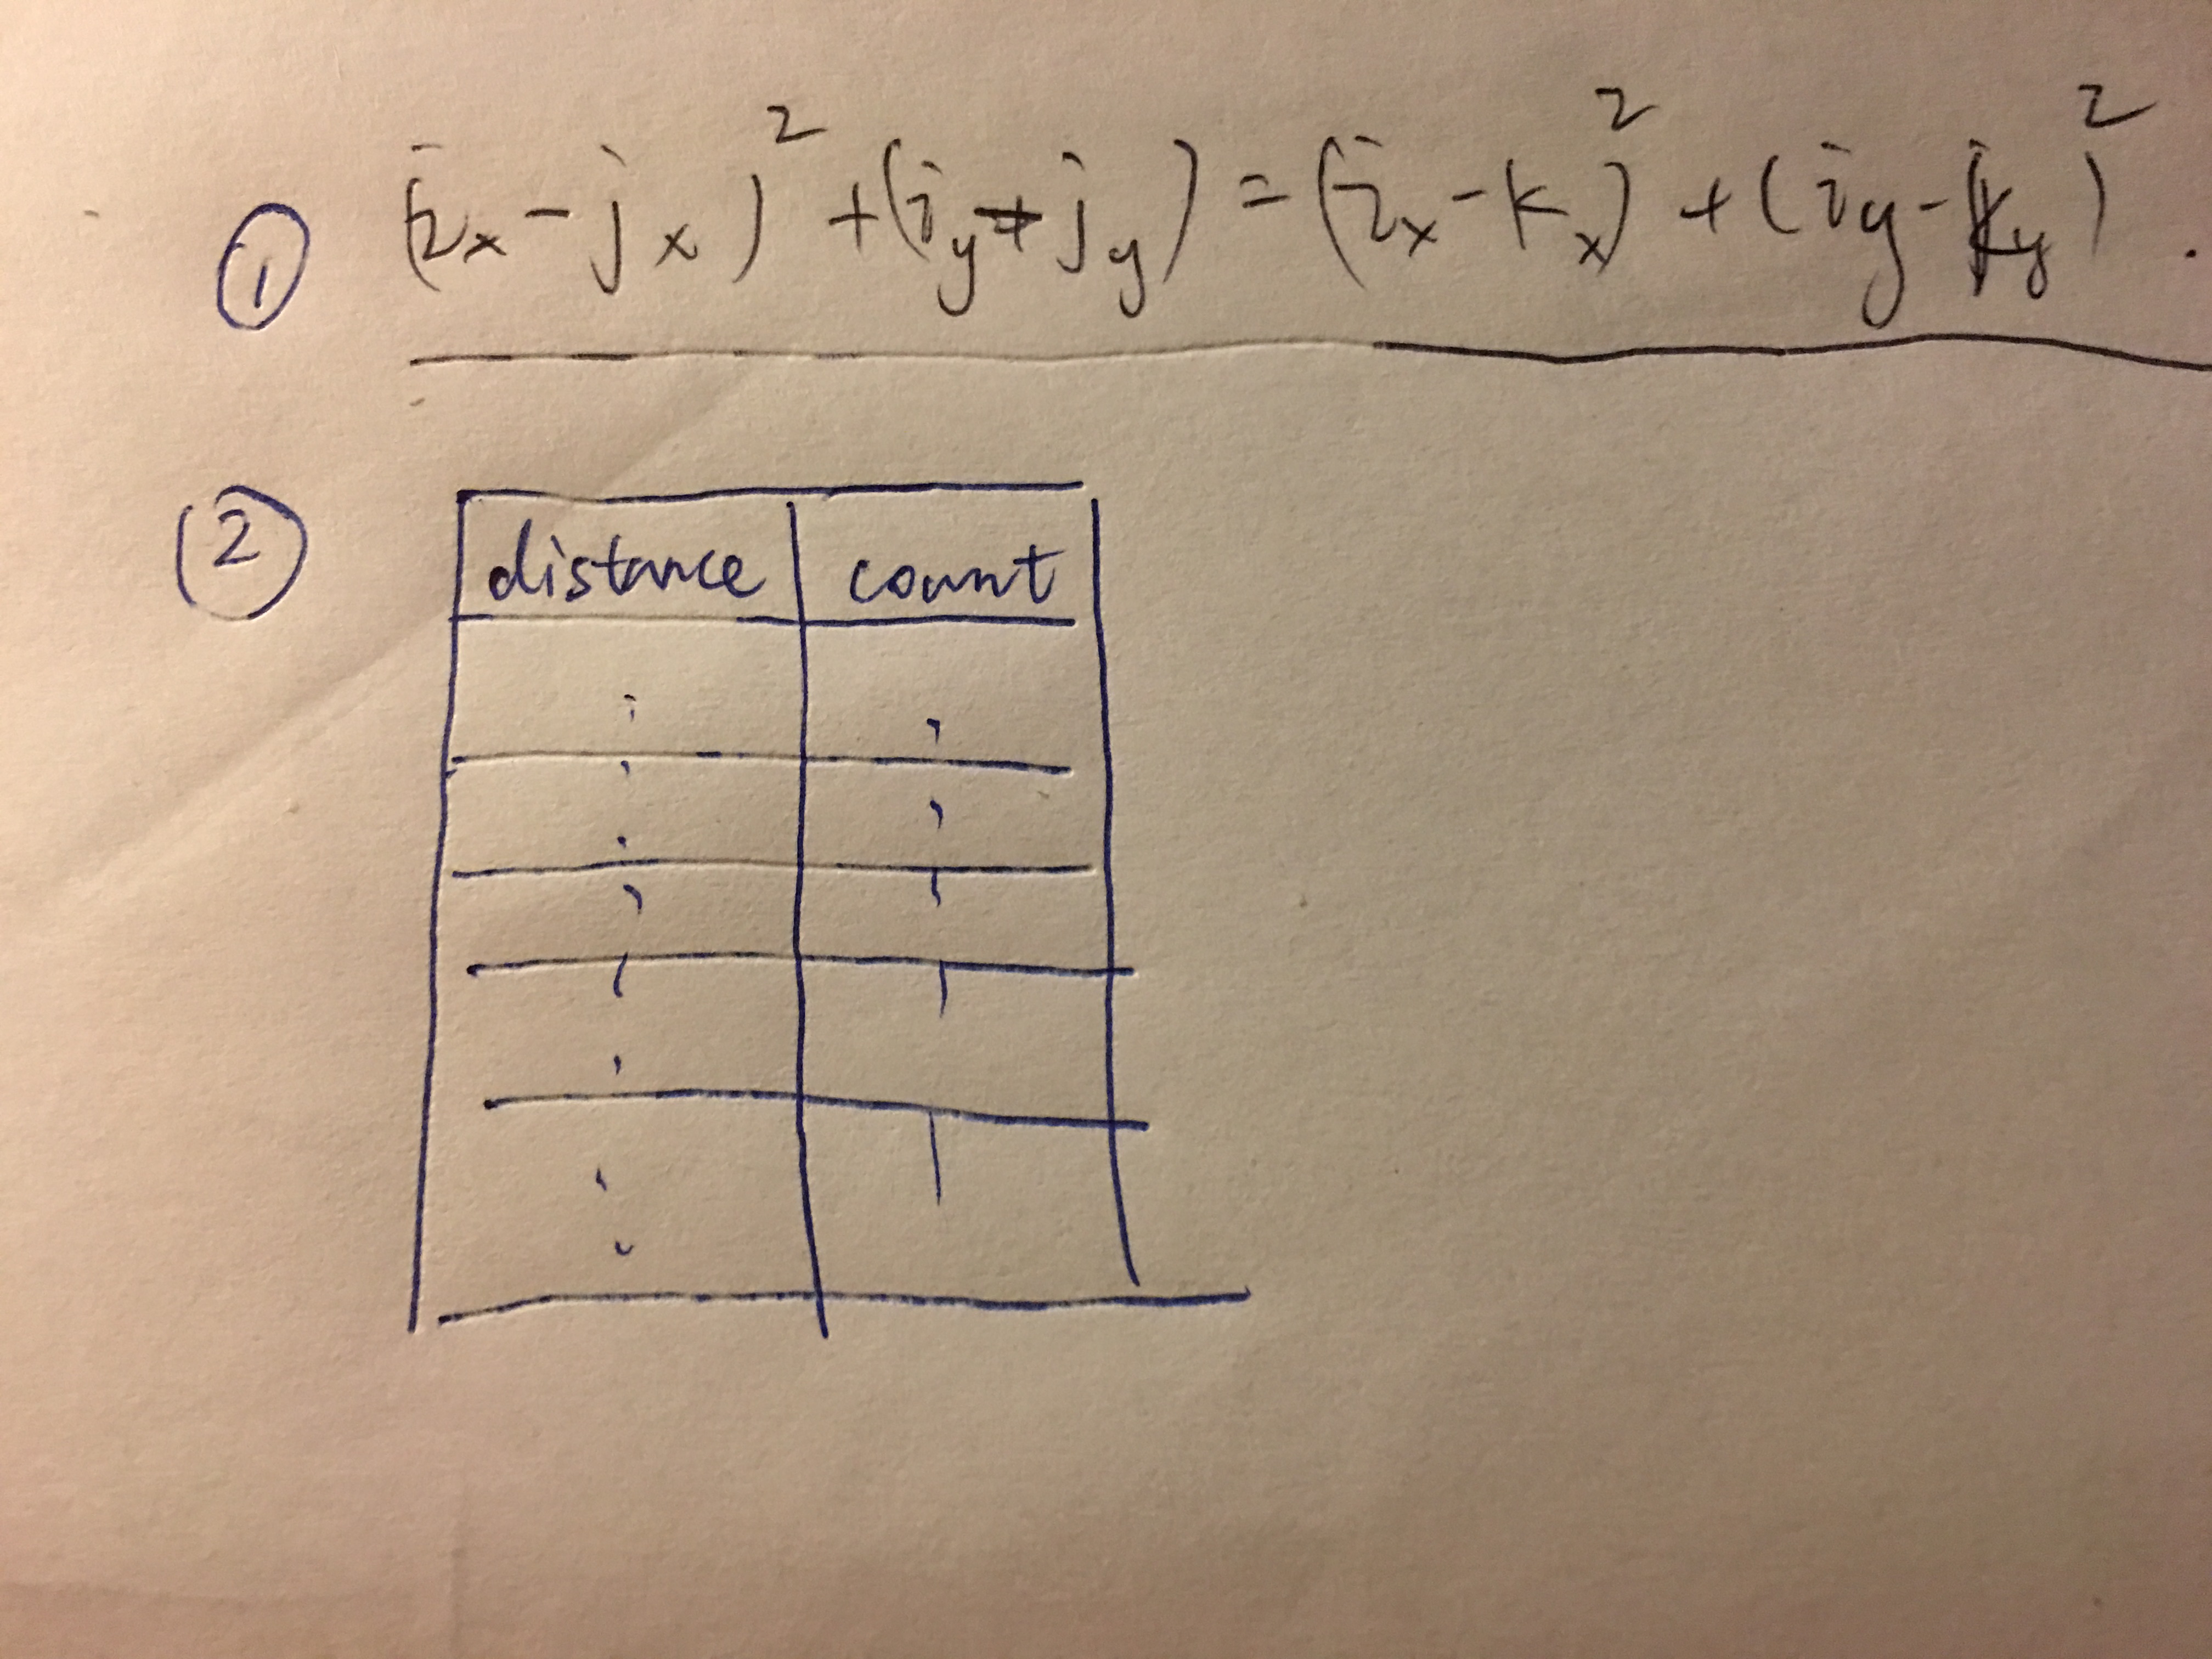 ① (ix - jx)² + (iy - jy) = (ix - kx)² + (iy - ky)².
②
distance count